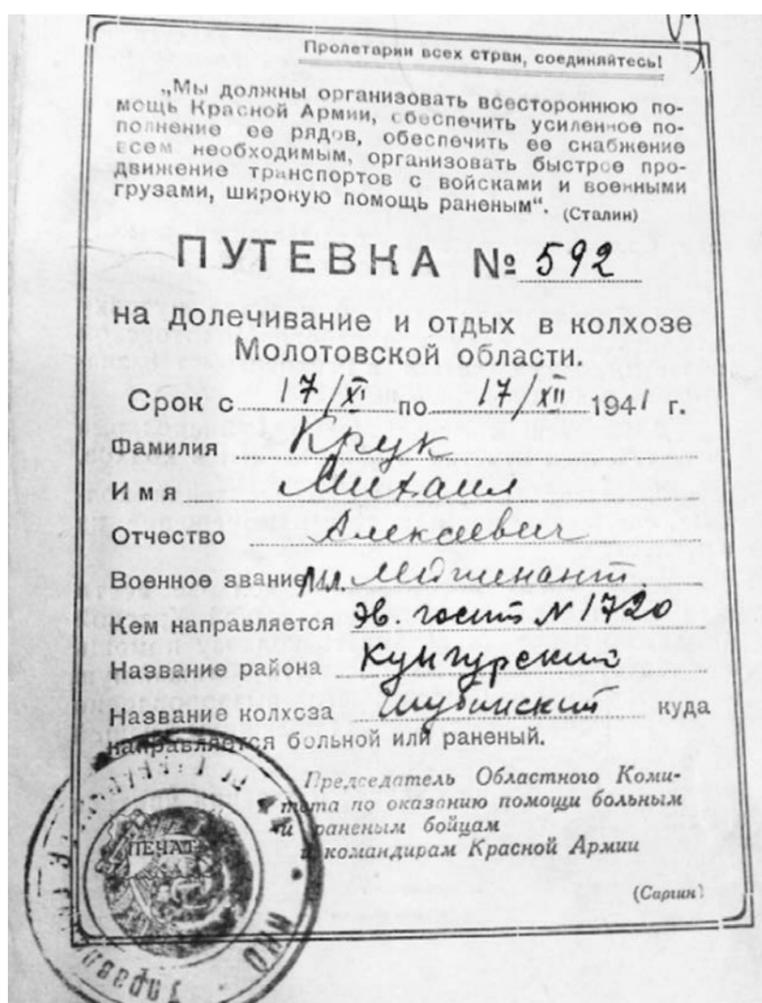 Пролетарии всех стран, соединяйтесь!
„Мы должны организовать всестороннюю по-
мощь Красной Армии, обеспечить усиленное по-
полнение ее рядов, обеспечить ее снабжение
всем необходимым, организовать быстрое про-
движение транспортов с войсками и военными
грузами, широкую помощь раненым“. (Сталин)
ПУТЕВКА № 592
на долечивание и отдых в колхозе
Молотовской области.
Срок с 17/XI по 17/XII 1941 г.
Фамилия Крук
Имя Михаил
Отчество Алексеевич
Военное звание Мл. Лейтенант
Кем направляется Эв. госпит N 1720
Название района Кунгурский
Название колхоза Шубинский куда
направляется больной или раненый.
Председатель Областного Коми-
тета по оказанию помощи больным
и раненым бойцам
и командирам Красной Армии
ПЕЧАТЬ
(Саргин)